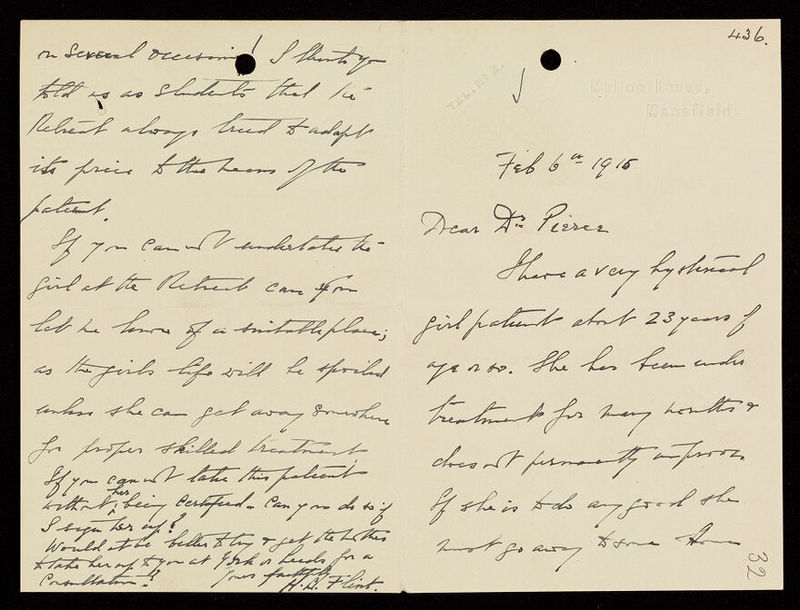 436.
TEL. Nº 2.
Melton House,
Mansfield.
Feb 6th 1915
Dear Dr. Pierce
I have a very hysterical
girl patient about 23 years of
age or so. She has been under
treatment for many months &
does not permanently improve.
If she is to do any good she
must go away to some Home
32
on several occasions! I think you
told us as students that the
Retreat always tried to adapt
its price to the means of the
patient.
If you cannot undertake the
girl at the Retreat can you
let me know of a suitable place;
as the girls life will be spoiled
unless she can get away somewhere
for proper skilled treatment
If you cannot take this patient
without her being certified - Can you do so if
I sign her up?
Would it be better to try & get the mother
to take her up to you at York or Leeds for a
Consultation?
Yours faithfully
H. B. Flint.